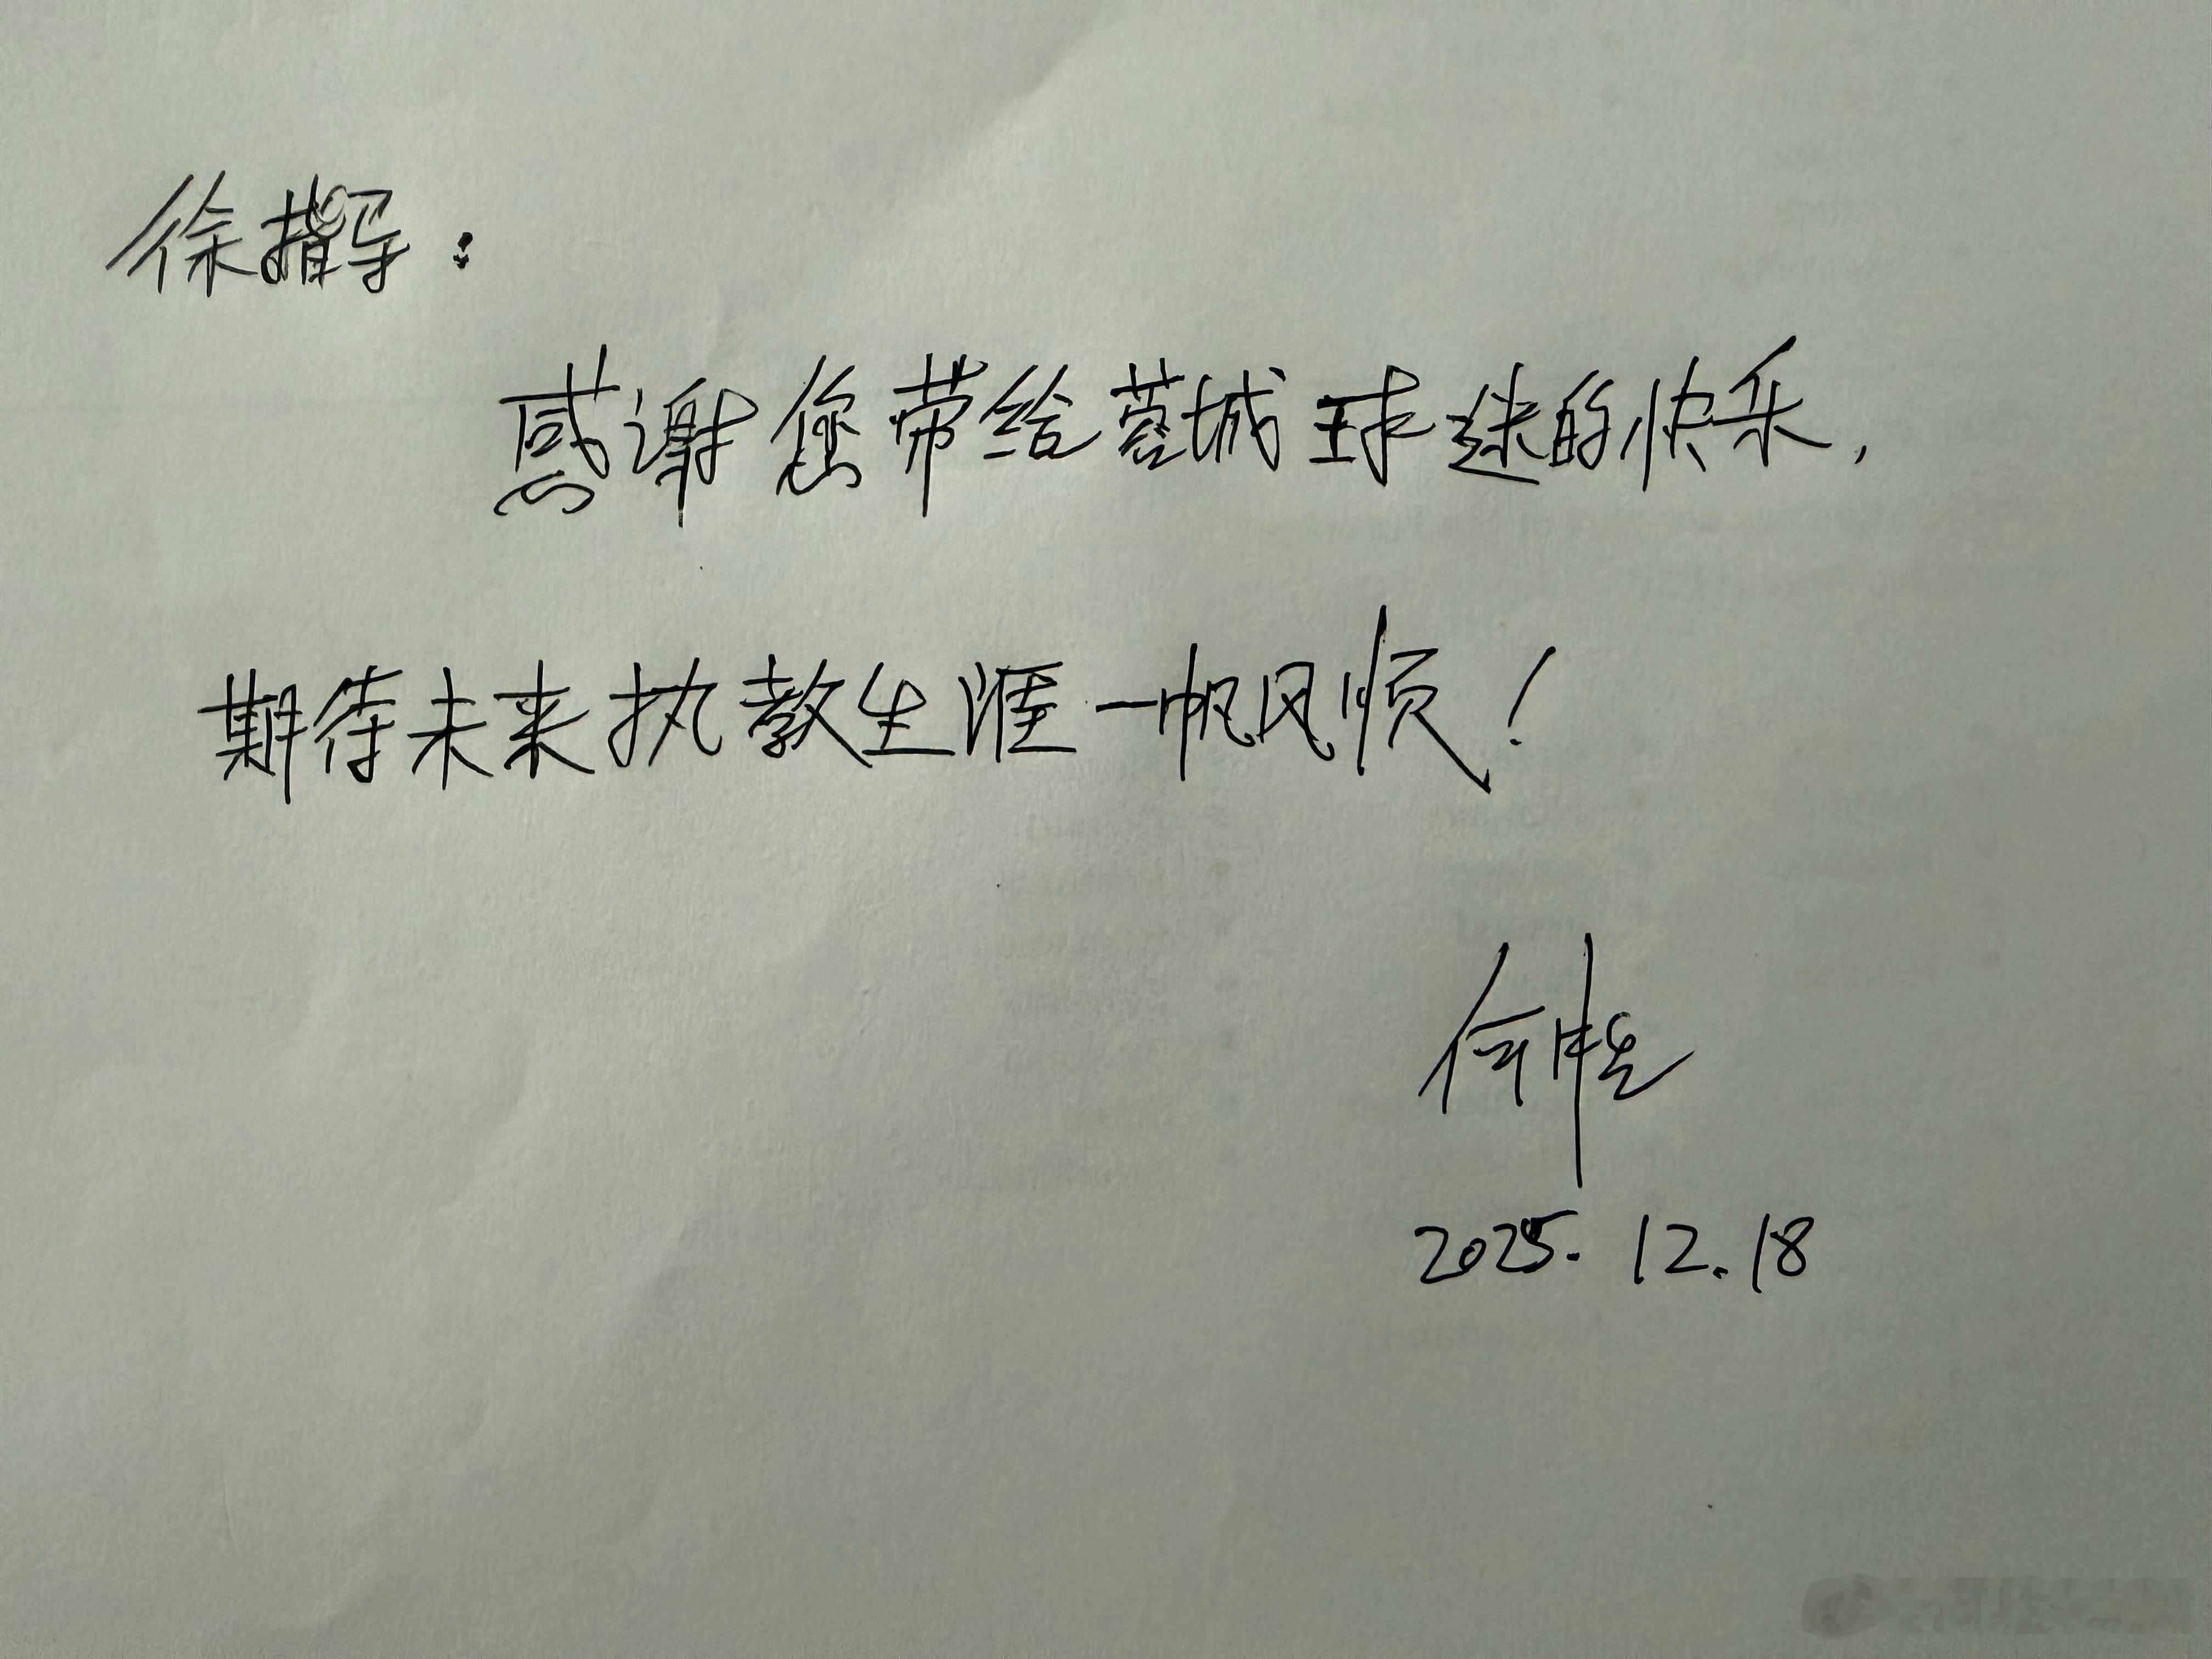 徐指导：
感谢您带给蓉城球迷的快乐，
期待未来执教生涯一帆风顺！
2025.12.18